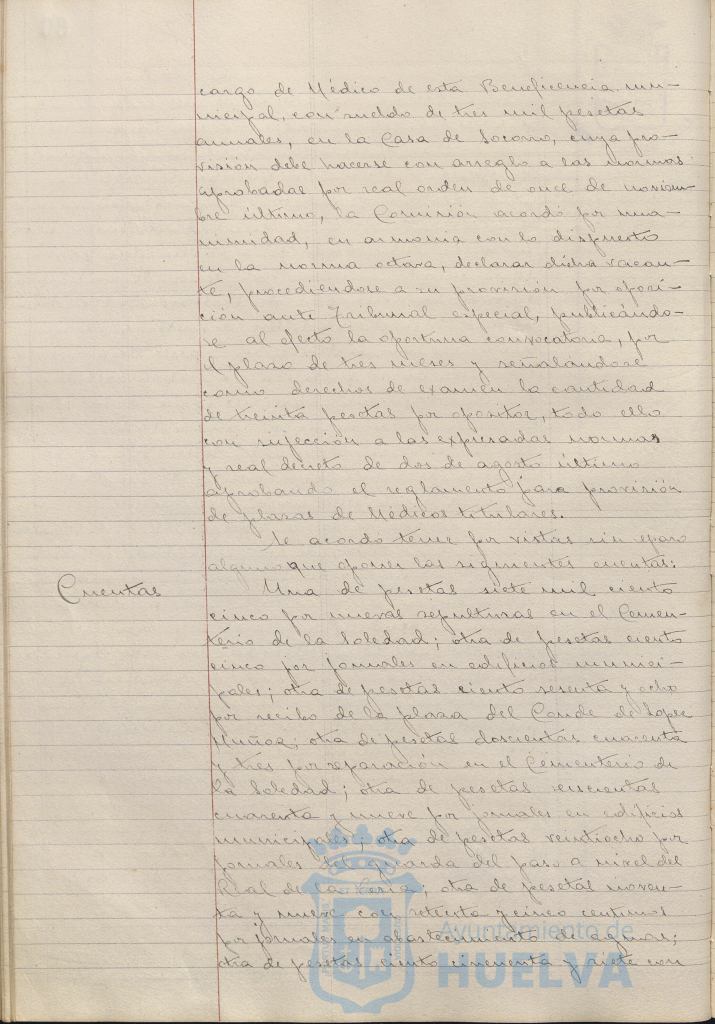 cargo de Médico de esta Beneficencia mu-
nicipal, con sueldo de tres mil pesetas
anuales, en la Casa de Socorro, cuya pro-
visión debe hacerse con arreglo a las normas
aprobadas por real orden de once de noviem-
bre último, la Comisión acordó por una-
nimidad, en armonia con lo dispuesto
en la norma octava, declarar dicha vacan-
te, procediendose a su provisión por oposi-
ción ante Tribunal especial, publicándo-
se al efecto la oportuna convocatoria, por
el plazo de tres meses y señalándose
como derechos de examen la cantidad
de treinta pesetas por opositor, todo ello
con sujección a las expresadas normas
y real decreto de dos de agosto último
aprobando el reglamento para provisión
de plazas de Médicos titulares.
Se acordó tener por vistas sin reparo
alguno que oponer las siguientes cuentas:
Cuentas Una de pesetas siete mil ciento
cinco por nuevas sepulturas en el Cemen-
terio de la Soledad; otra de pesetas ciento
cinco por jornales en edificios munici-
pales; otra de pesetas ciento sesenta y ocho
por recibo de la plaza del Conde de López
Muñoz; otra de pesetas doscientas cuarenta
y tres por reparación en el Cementerio de
la Soledad; otra de pesetas seiscientas
cuarenta y nueve por jornales en edificios
municipales; otra de pesetas veintiocho por
jornales del guarda del paso a nivel del
Real de la Feria; otra de pesetas noven-
ta y nueve con setenta y cinco centimos
por jornales en abastecimiento de aguas;
otra de pesetas ciento cincuenta y siete con
Ayuntamiento de
HUELVA